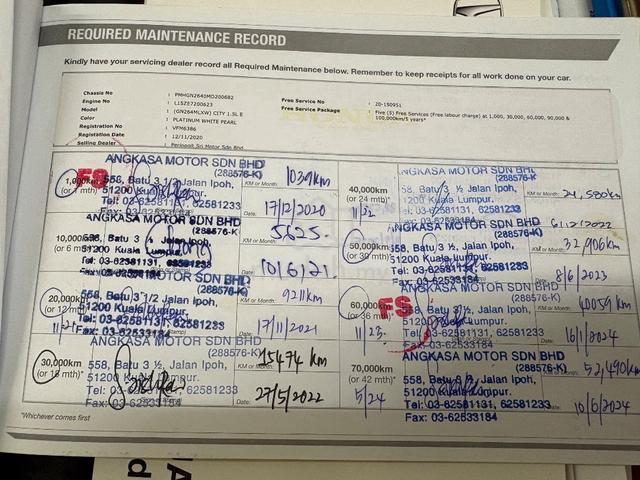 REQUIRED MAINTENANCE RECORD
Kindly have your servicing dealer record all Required Maintenance below. Remember to keep receipts for all work done on your car.
Chassis No : PMHGN2640MD200682
Engine No : L15ZE7200623
Model : (GN264MLXW) CITY 1.5L E
Color : PLATINUM WHITE PEARL
Registration No : VFM6386
Registration Date : 12/11/2020
Selling Dealer : Perinooit Sri Motor Sdn Bhd
Free Service No : 20-150951
Free Service Package : Five (5) Free Services (Free labour charge) at 1,000, 30,000, 60,000, 90,000 & 100,000km/5 years*
1,000km
(or 1 mth)
FS
ANGKASA MOTOR SDN BHD
(288576-K)
558, Batu 3 1/2 Jalan Ipoh,
51200 Kuala Lumpur.
Tel: 03-62581131, 62581233
Fax: 03-62533184
KM or Month:
1039km
Date:
17/12/2020
10,000km
(or 6 mth)
ANGKASA MOTOR SDN BHD
(288576-K)
558, Batu 3 ½ Jalan Ipoh,
51200 Kuala Lumpur.
Tel: 03-62581131, 62581233
5625.
10/6/21
20,000km
(or 12 mth)
11/21
ANGKASA MOTOR SDN BHD
(288576-K)
558, Batu 3 1/2 Jalan Ipoh,
51200 Kuala Lumpur,
Tel: 03-62581131, 62581233
Fax: 03-62533184
9211km
Date:
17/11/2021
30,000km
(or 18 mth)*
ANGKASA MOTOR SDN BHD
(288576-K)
558, Batu 3 ½, Jalan Ipoh,
51200 Kuala Lumpur.
Tel: 03-62581131, 62581233
Fax: 03-62533184
KM or Month:
15474 km
Date:
27/5/2022
40,000km
(or 24 mth)*
11/22
ANGKASA MOTOR SDN BHD
(288576-K)
558, Batu 3 ½ Jalan Ipoh,
Kuala Lumpur.
Tel: 03-62581131, 62581233
KM or Month:
24,580km
6/12/2022
50,000km
(or 30 mth)
ANGKASA MOTOR SDN BHD
(288576-K)
558, Batu 3 ½, Jalan Ipoh,
51200 Kuala Lumpur.
Tel: 03-62581131, 62581233
KM or Month:
32,906km
Date:
8/6/2023
60,000km
(or 36 mth)
11/23.
FS
ANGKASA MOTOR SDN BHD
(288576-K)
558, Batu 3 ½, Jalan Ipoh,
51200 Kuala Lumpur.
Tel: 03-62581131, 62581233
Fax: 03-62533184
40059km
16/1/2024
70,000km
(or 42 mth)
5/24
ANGKASA MOTOR SDN BHD
(288576-K)
558, Batu 3 ½, Jalan Ipoh,
51200 Kuala Lumpur.
Tel: 03-62581131, 62581233
Fax: 03-62533184
KM or Month:
52,490km
Date:
10/6/2024
*Whichever comes first